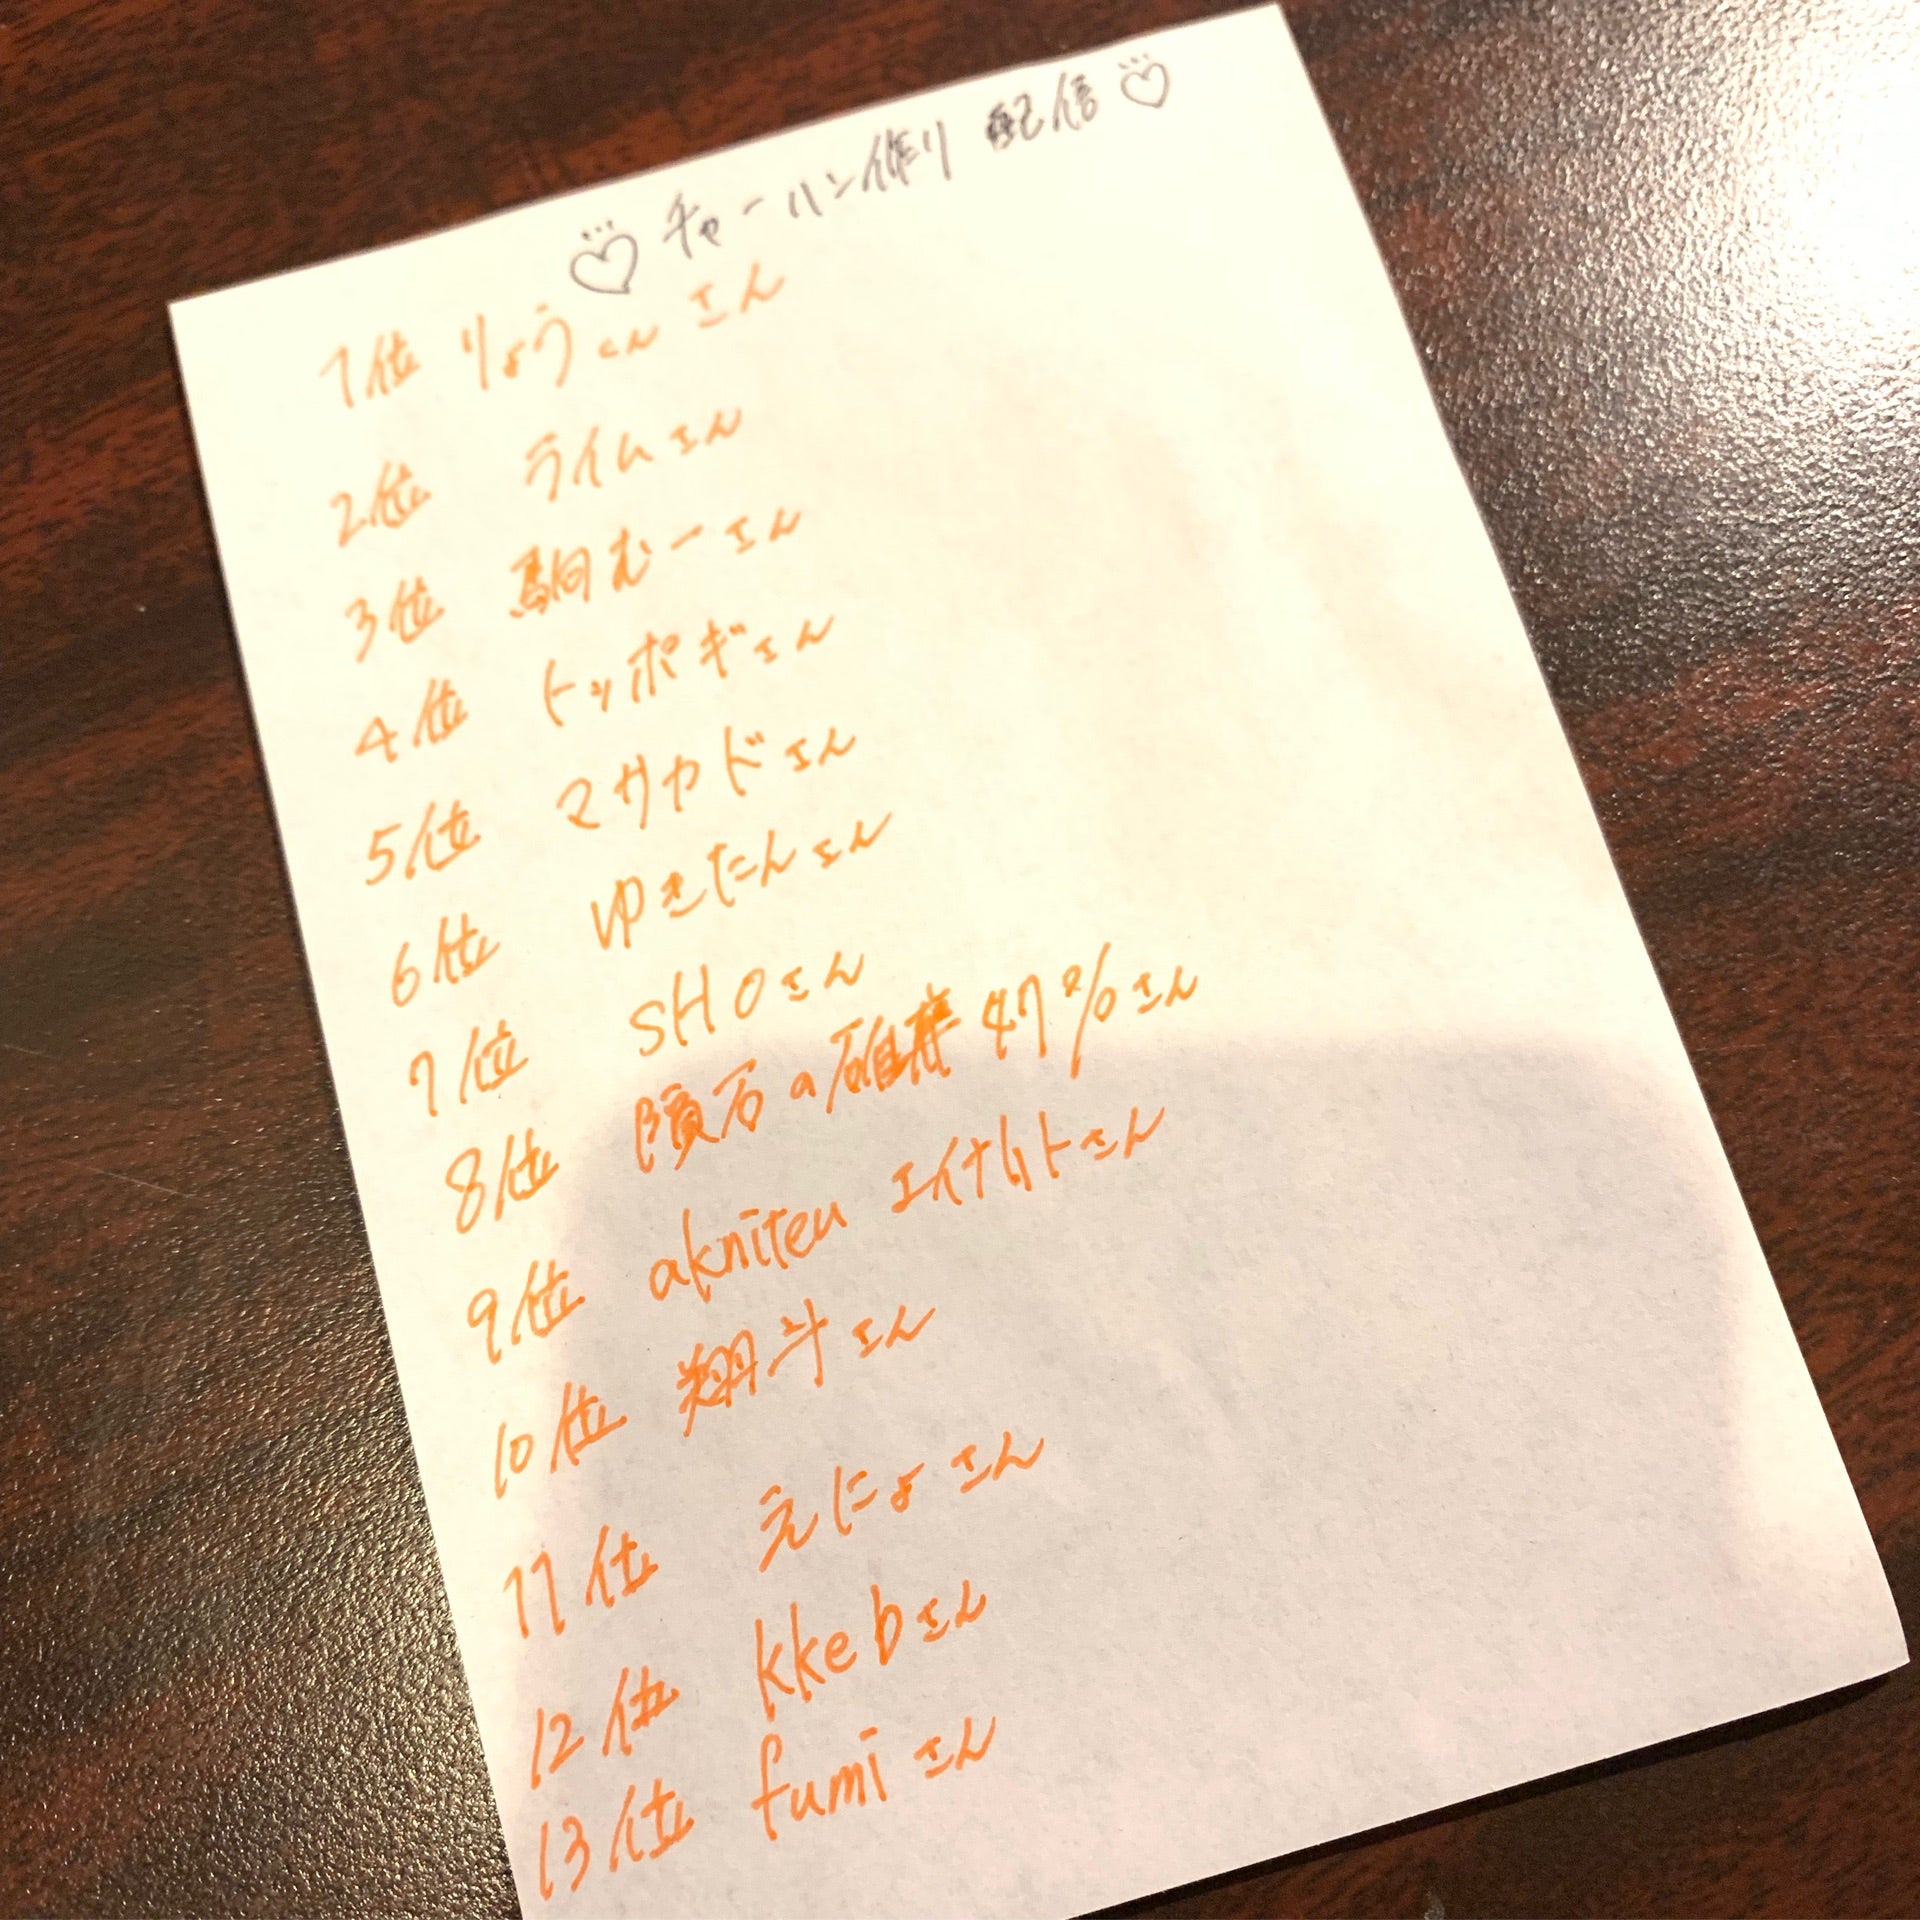 ♡ チャーハン作り 配信 ♡
1位 りょうくんさん
2位 ライムさん
3位 駒むーさん
4位 トッポギさん
5位 マサカドさん
6位 ゆきたんさん
7位 SHOさん
8位 隕石の確率47%さん
9位 akniteu エイナットさん
10位 翔斗さん
11位 えにょさん
12位 kkebさん
13位 fumiさん